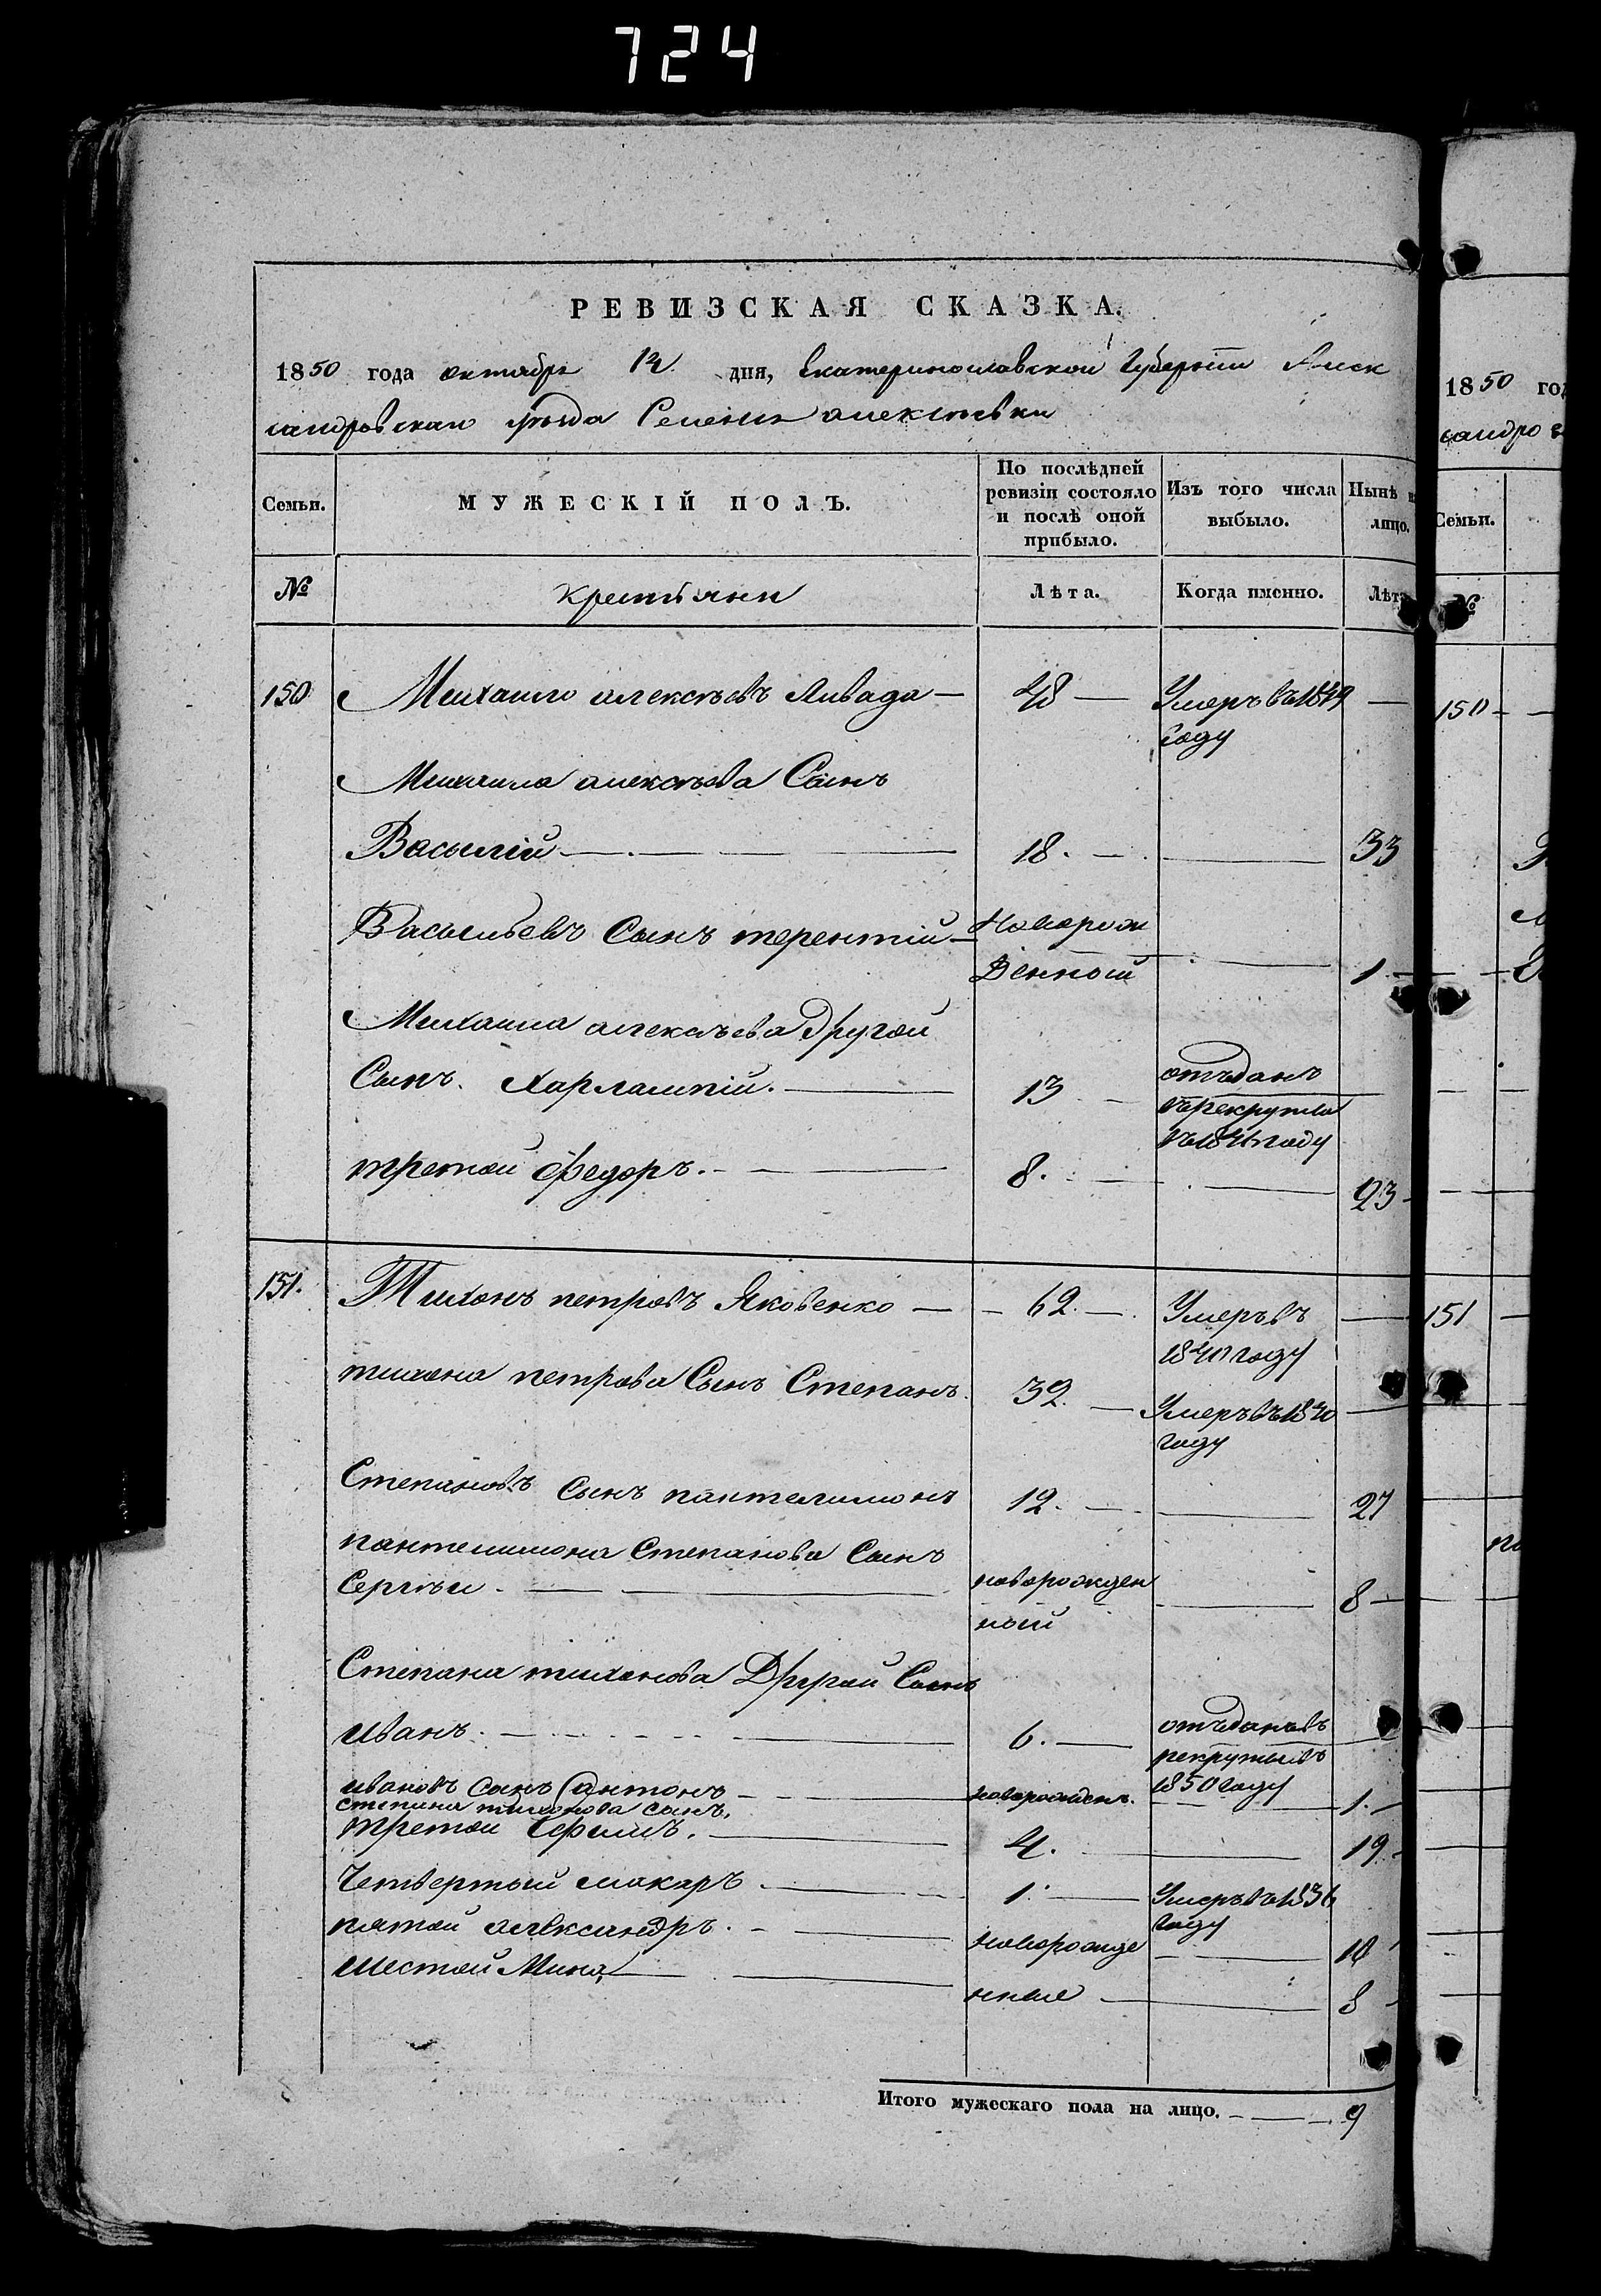 724
РЕВИЗСКАЯ СКАЗКА.
1850 года октября 12 дня, Екатеринославской Губерніи Алек
сандровскаго уѣзда Селенія алексѣевки
Семьи.
МУЖЕСКІЙ ПОЛЪ.
По послѣдней ревизіи состояло и послѣ оной прибыло.
Изъ того числа выбыло.
Нынѣ н
лицо.
№
крестьяни
Лѣта.
Когда именно.
Лѣта
150 Михаило алексѣевъ Ливада — 48 — Умеръ въ 1849 —
году
Михаила алексѣева Сынъ
Василій — 18. — 33
Васильевъ Сынъ терентій — Новорож
денный 1
Михаила алексѣева Другой
Сынъ Харлампій. — 13 — отъданъ
въ рекруты
въ 1841 году
третой федоръ. — 8. — 23
151. Тихонъ петровъ Яковенко — 62. — Умеръ въ —
1840 году
тихона петрова Сынъ Степанъ. 32. — Умеръ въ 1840 —
году
Степановъ Сынъ пантелимонъ 12. — 27
пантелимона Степанова Сынъ
Сергѣи. — новорожден
ный 8 —
Степана тихонова Другой Сынъ
иванъ. — 6. — отъданъ въ
рекруты въ
1850 году
ивановъ сынъ антонъ — новорожденъ. 1. —
степана тихонова сынъ,
третои Ефимъ. — 4. — 19 —
Четвертый макаръ — 1. — Умеръ въ 1836
году
пятой александръ. — новорожде 10
шестой Мина — нные — 8 —
Итого мужескаго пола на лицо. — 9
1850 год
сандров
Семьи.
№
150 —
151 —